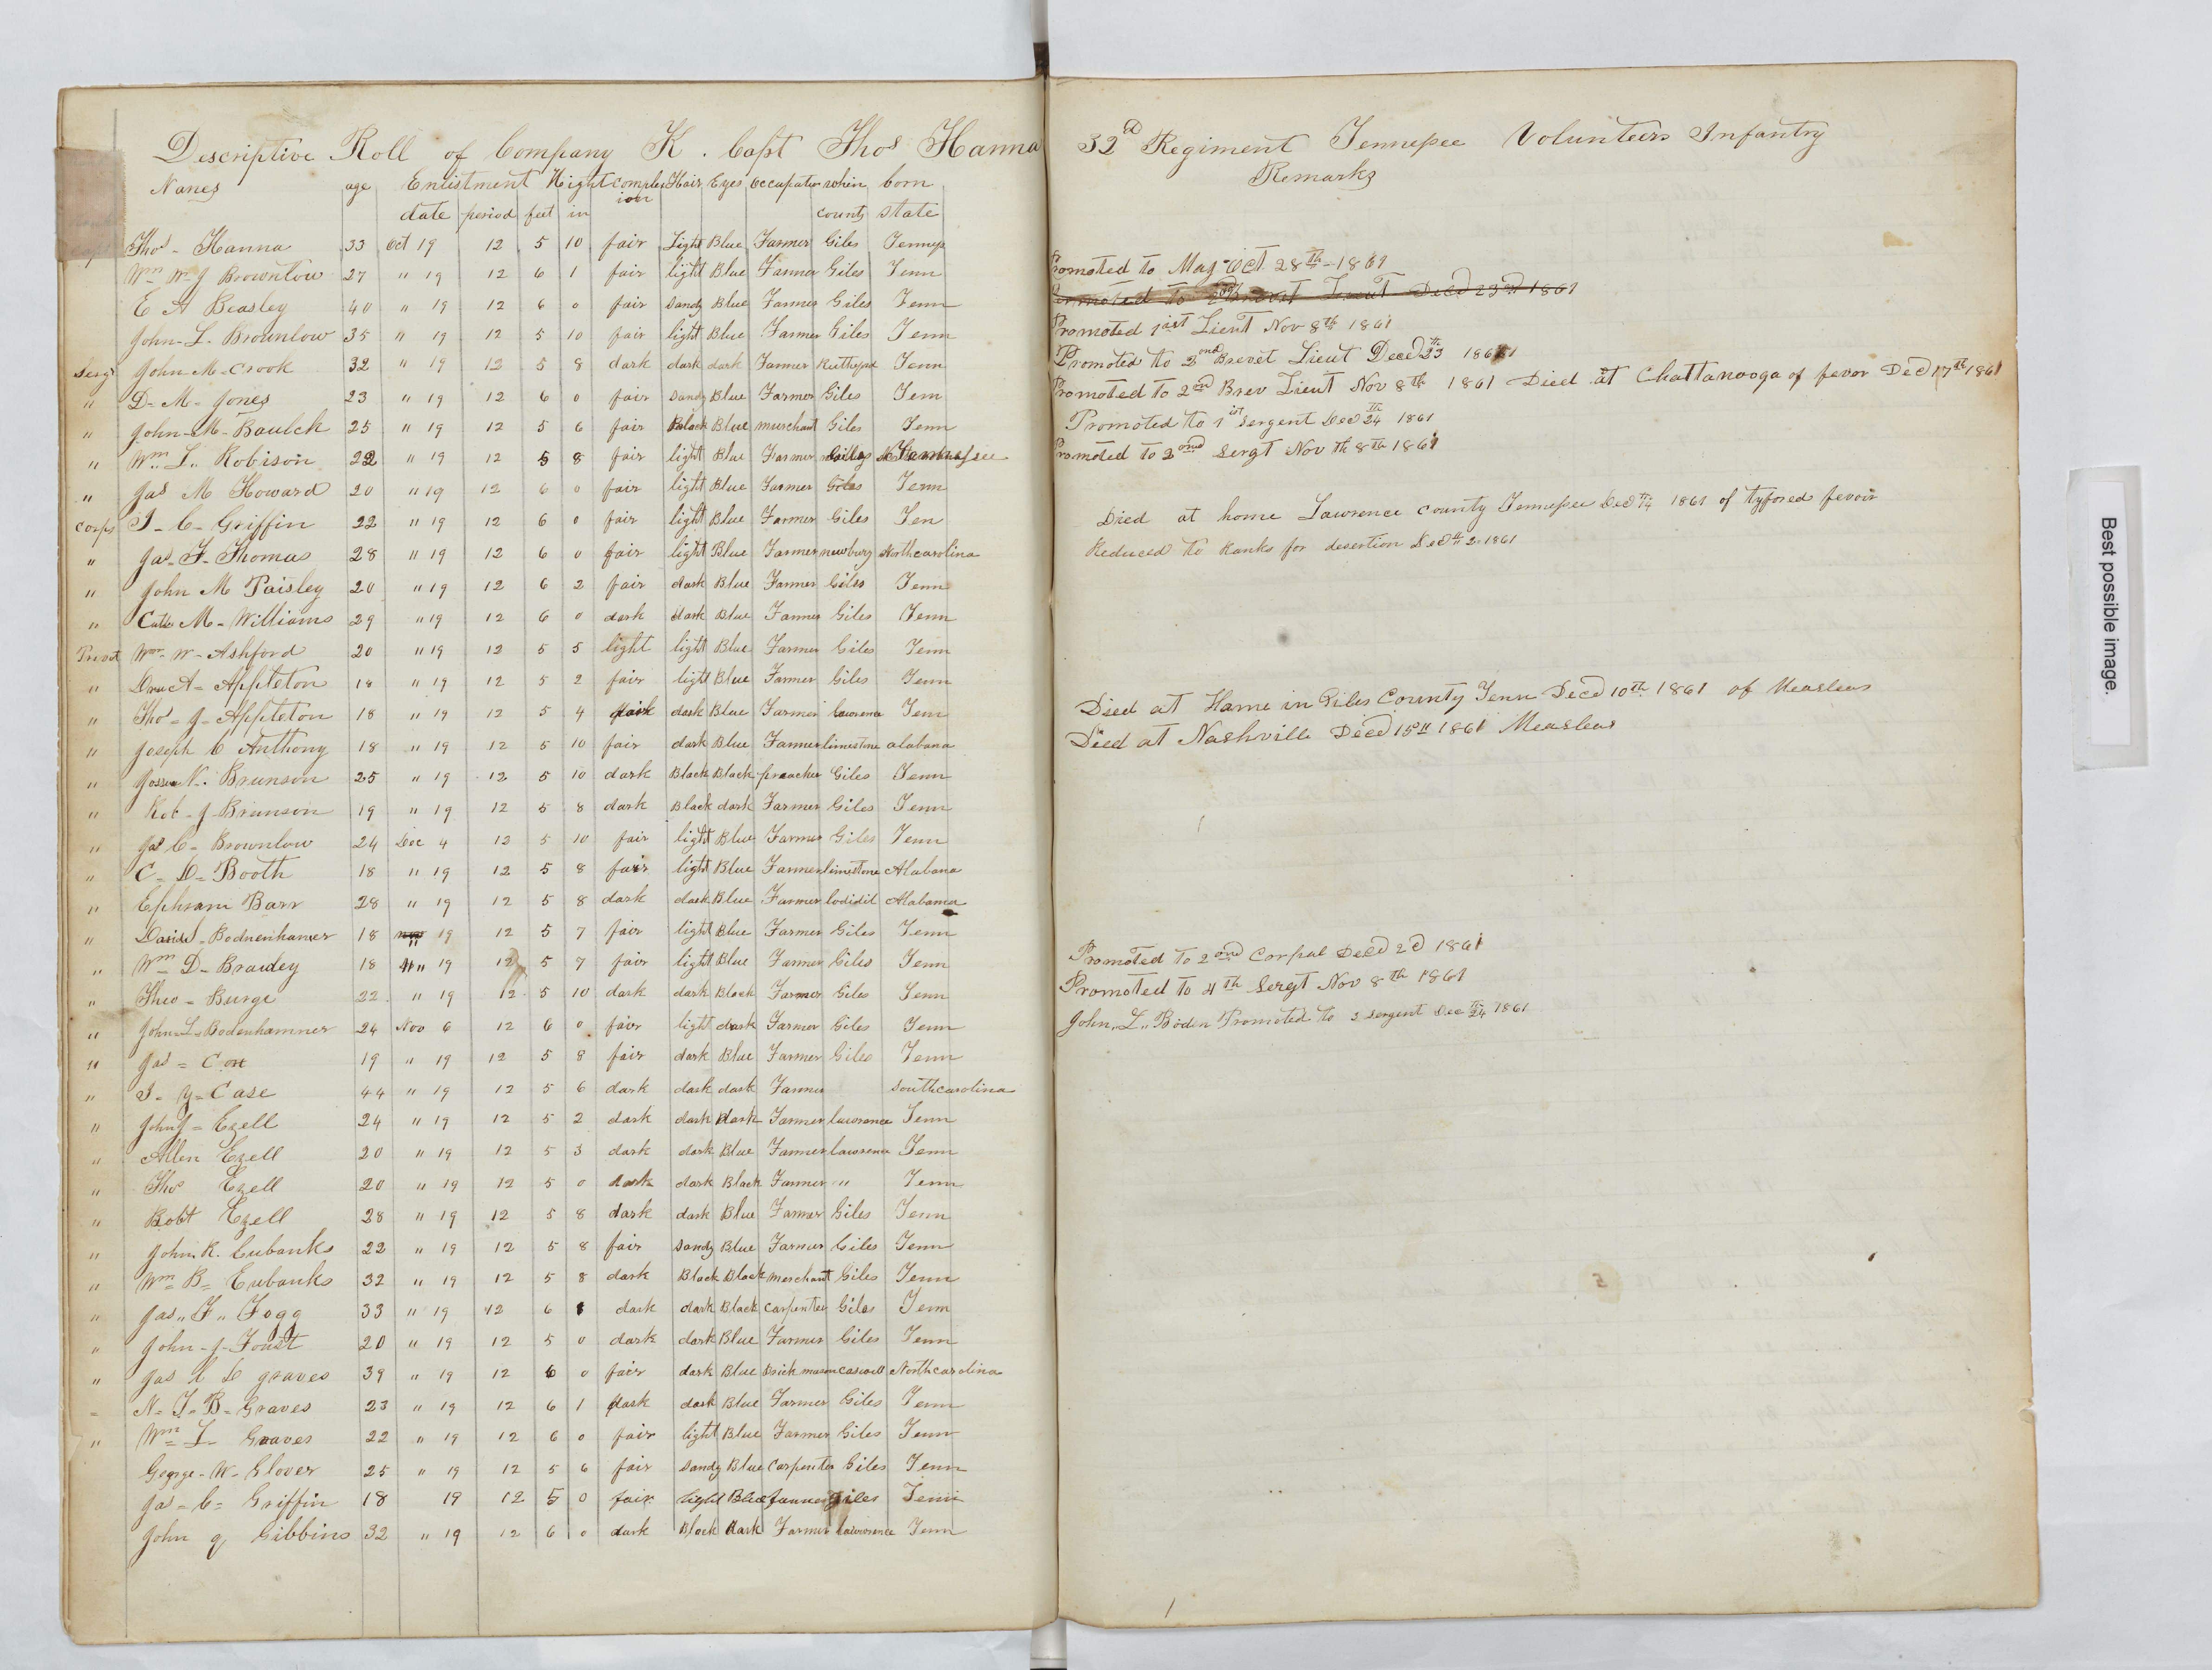 Descriptive Roll of Company K. Capt Thos Hanna
Names age Enlistment Hight Complexion Hair Eyes occupation when born
date period feet in county state
Thos - Hanna 33 Oct 19 12 5 10 fair Light Blue Farmer Giles Tenness
Wm Wm J Brownlow 27 " 19 12 6 1 fair light Blue Farmer Giles Tenn
E A Beasley 40 " 19 12 6 0 fair sandy Blue Farmer Giles Tenn
John L. Brownlow 35 " 19 12 5 10 fair light Blue Farmer Giles Tenn
Serg John M - Crook 32 " 19 12 5 8 dark dark dark Farmer Tenn
" D - M - Jones 23 " 19 12 6 0 fair sandy Blue Farmer Giles Tenn
" John - M - Baulch 25 " 19 12 5 6 fair Black Blue murchant Giles Tenn
" Wm L. Robison 22 " 19 12 5 8 fair light Blue Farmer
" Jas M Howard 20 " 19 12 6 0 fair light Blue Farmer Giles Tenn
Corps J - C - Griffin 22 " 19 12 6 0 fair light Blue Farmer Giles Ten
" Jas - F - Thomas 28 " 19 12 6 0 fair light Blue Farmer newbury Northcarolina
" John M Paisley 20 " 19 12 6 2 fair dark Blue Farmer Giles Tenn
" M - Williams 29 " 19 12 6 0 dark dark Blue Farmer Giles Tenn
Privat Wm - W - Ashford 20 " 19 12 5 5 light light Blue Farmer Giles Tenn
" Drue A - Appleton 18 " 19 12 5 2 fair light Blue Farmer Giles Tenn
" Thos - J - Appleton 18 " 19 12 5 4 dark dark Blue Farmer lawrence Tenn
" Joseph C Anthony 18 " 19 12 5 10 fair dark Blue Farmer limestone alabana
" N. Brunson 25 " 19 12 5 10 dark Black Black preacher Giles Tenn
" Rob - J - Brunson 19 " 19 12 5 8 dark Black dark Farmer Giles Tenn
" Jas C - Brownlow 24 Dec 4 12 5 10 fair light Blue Farmer Giles Tenn
" C - D - Booth 18 " 19 12 5 8 fair light Blue Farmer limestone Alabana
" Ephram Barr 28 " 19 12 5 8 dark dark Blue Farmer Alabama
" David - Bodnenhamer 18 " 19 12 5 7 fair light Blue Farmer Giles Tenn
" Wm D - Brawley 18 " 19 12 5 7 fair light Blue Farmer Giles Tenn
" Theo - Burge 22 " 19 12 5 10 dark dark Black Farmer Giles Tenn
" John - L - Bodenhamner 24 Nov 6 12 6 0 fair light dark Farmer Giles Tenn
" Jas = 19 " 19 12 5 8 fair dark Blue Farmer Giles Tenn
" J - Y - Case 44 " 19 12 5 6 dark dark dark Farmer Southcarolina
" John J - Ezell 24 " 19 12 5 2 dark dark dark Farmer lawrance Tenn
" Allen Ezell 20 " 19 12 5 3 dark dark Blue Farmer lawrence Tenn
" Thos Ezell 20 " 19 12 5 0 dark dark Black Farmer " Tenn
" Robt Ezell 28 " 19 12 5 8 dark dark Blue Farmer Giles Tenn
" John. R. Eubanks 22 " 19 12 5 8 fair sandy Blue Farmer Giles Tenn
" Wm = B = Eubanks 32 " 19 12 5 8 dark Black Black merchant Giles Tenn
" Jas " F " Fogg 33 " 19 12 6 1 dark dark Black Carpenter Giles Tenn
" John - J - Foust 20 " 19 12 5 0 dark dark Blue Farmer Giles Tenn
" Jas graves 39 " 19 12 6 0 fair dark Blue Brick mason Caswell Northcarolina
- N - J - B - Graves 23 " 19 12 6 1 dark dark Blue Farmer Giles Tenn
" Wm L - Graves 22 " 19 12 6 0 fair light Blue Farmer Giles Tenn
George - W - Glover 25 " 19 12 5 6 fair sandy Blue Carpenter Giles Tenn
Jas = C = Griffin 18 19 12 5 0 fair light Blue farmer Giles Tenn
John Gibbins 32 " 19 12 6 0 dark Black dark Farmer lawrence Tenn
32d Regiment Tennessee Volunteers Infantry
Remarks
Promoted to Maj Oct. 28th - 1861
Promoted to 2nd Brevet Lieut Decd 23rd 1861
Promoted 1ist Lieut Nov 8th 1861
Promoted to 2nd Brevet Lieut Decd 23th 1861
Promoted to 2nd Brev Lieut Nov 8th 1861 Died at Chattanooga of fevor Decd 17th 1861
Promoted to 1ist Sergent Decd 24th 1861
Promoted to 2ond Sergt Nov th 8th 1861
Died at home Lawrence County Tennessee Decd 1861 of tyfored fevoir
Reduced to Ranks for desertion Decd th 2 1861
Died at Hame in Giles County Tenn Decd 10th 1861 of Measleas
Died at Nashville Decd 15th 1861 Measleas
Promoted to 2ond Corpal Decd 2d 1861
Promoted to 4th Sergt Nov 8th 1861
John, L,, Boden Promoted to 3 sergent Dec 24th 1861
5
Best possible image.